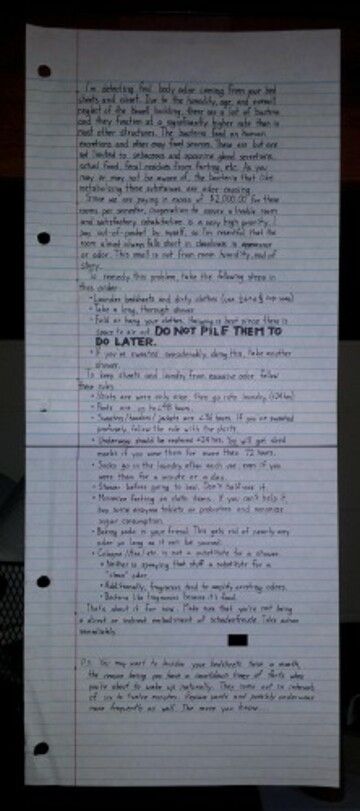 I'm detecting foul body odor coming from your bed
sheets and closet. Due to the humidity, age, and overall
neglect of the Howell building, there are a lot of bacteria
and they function at a significantly higher rate than in
most other structures. The bacteria feed on human
excretions and other easy food sources. These are but are
not limited to sebaceous and apocrine gland secretions,
actual food, fecal reaches from farting, etc. As you
may or may not be aware of, the bacteria that like
metabolizing these substances are odor causing.
Since we are paying in excess of $2,000.00 for these
rooms per semester, cooperation to assure a livable room
and satisfactory cohabitation is a very high priority. I
pay out-of-pocket by myself, so I'm resentful that the
room almost always falls short in cleanliness in appearance
or odor. This smell is not from mere humidity, end of
story.
To remedy this problem, take the following steps in
this order:
• Launder bedsheets and dirty clothes
• Take a long, thorough shower.
• Fold or hang your clothes. Hanging is best since there is
space to air out. DO NOT PILE THEM TO
DO LATER.
• If you've sweated considerably doing this, take another
shower.
To keep sheets and laundry from excessive odor follow
these rules:
• Shirts are worn only once. Then go into laundry. (≤24 hrs)
• Pants are up to ≤48 hours.
• Sweaters/hoodies/jackets are If you've sweated
profusely, follow the rule with the shirts.
• Underwear should be replaced ≤24 hrs. You will get skid
marks if you wear them for more than 72 hours.
• Socks go in the laundry after each use, even if you
wore them for a minute or a day.
• Shower before going to bed. Don't half-ass it.
• Minimize farting on cloth items. If you can't help it,
buy some enzyme tablets or probiotics and minimize
sugar consumption.
• Baking soda is your friend. This gets rid of nearly any
odor as long as it can be sourced.
• Cologne/Axe/etc. is not a substitute for a shower.
• Neither is spraying that stuff a substitute for a
"clean" odor.
• Additionally, fragrances tend to amplify existing odors.
• Bacteria like fragrances because it's food.
That's about it for now. Make sure that you're not being
a direct or indirect embodiment of Schadenfreude. Take action
immediately.
P.S. You may want to launder your bedsheets twice a month,
the reason being you have a countdown timer of farts when
you're about to wake up naturally. They come out in intervals
of six to twelve minutes. Replace pants and possibly underwear
more frequently as well. The more you know...